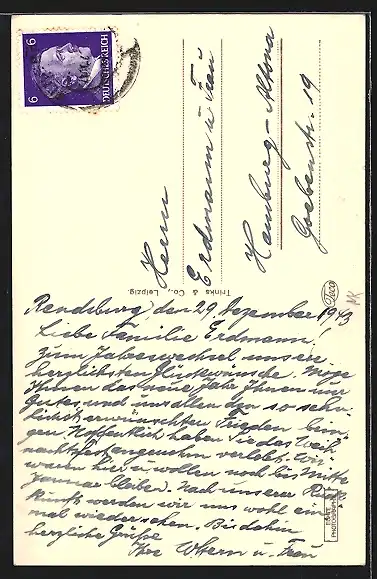 6 6
DEUTSCHES REICH
Herrn
Erdmann u Frau
Hamburg-Altona
Goebenstr. 19
Trinks & Co., Leipzig.
Rendsburg, den 29. Dezember 1943
Liebe Familie Erdmann,
Zum Jahreswechsel unsere
herzlichsten Glückwünsche. Möge
Ihnen das neue Jahr Ihnen nur
Gutes und uns allen den so sehn-
lichst erwünschten Frieden brin-
gen. Hoffentlich haben Sie das Weih-
nachtsfest angenehm verlebt. Wir
waren hier u. wollen noch bis Mitte
Januar bleiben. Nach unserer Rück-
kunft werden wir uns wohl ein-
mal wiedersehen. Bis dahin
herzliche Grüße
Ihre u. Frau
ECHTE
PHOTOGRAPHIE